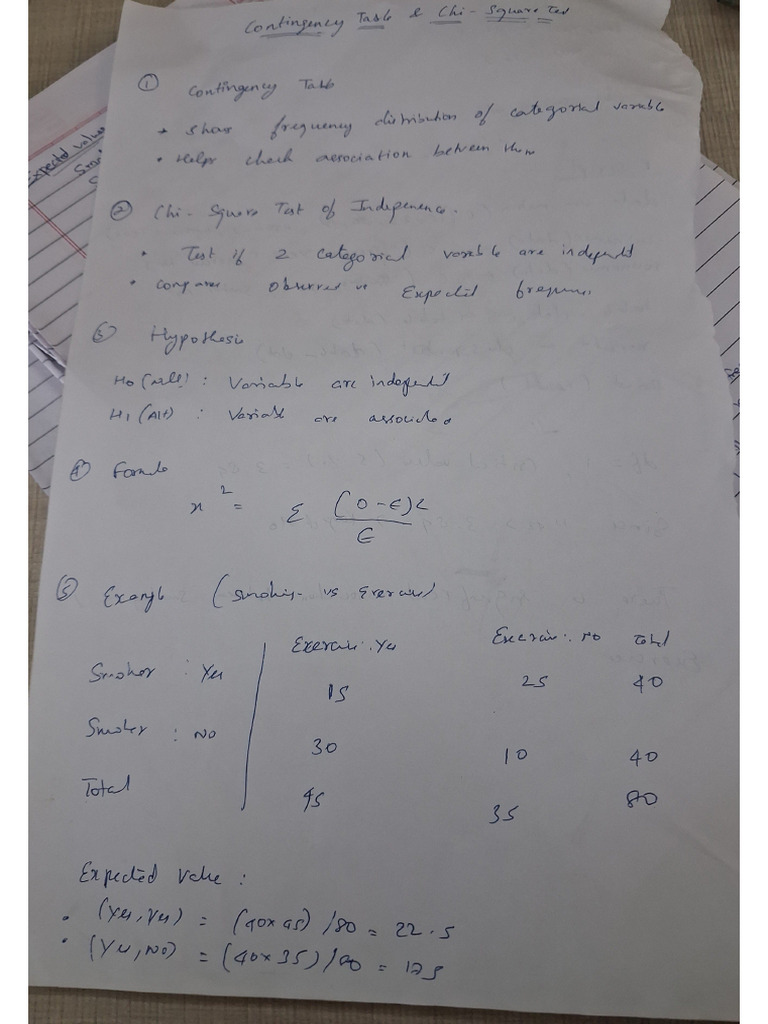 Contingency Table & Chi-Square Test
① Contingency Table
• Shows frequency distribution of categorial variable
• Helps check association between them
② Chi-Square Test of Indepenence.
• Test if 2 categorial variable are independt
• compares observed vs Expected frequences
③ Hypothesis
H0 (Null) : Variable are independt
H1 (Alt) : Variable are associated
④ Formula
x² = Σ (O-E)2 / E
⑤ Example (Smoking vs Exercise)
Exercise: Yes Exercise: No Total
Smoker : Yes 15 25 40
Smoker : No 30 10 40
Total 45 35 80
Expected value :
• (Yes, Yes) = (40x45) /80 = 22.5
• (Yes, No) = (40x35)/80 =
Expected value